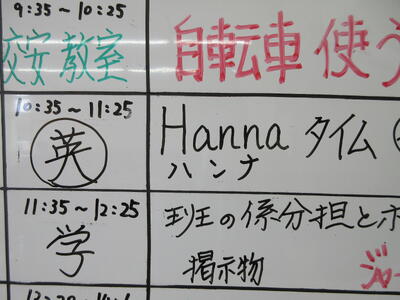 9:35~10:25
交安教室
自転車使う
10:35~11:25
英
Hannaタイム
ハンナ
11:35~12:25
学
班の係分担と
掲示物